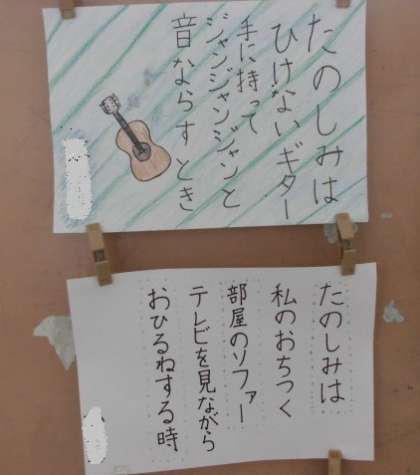 たのしみは
ひけないギター
手に持って
ジャンジャンジャンと
音ならすとき
たのしみは
私のおちつく
部屋のソファー
テレビを見ながら
おひるねする時